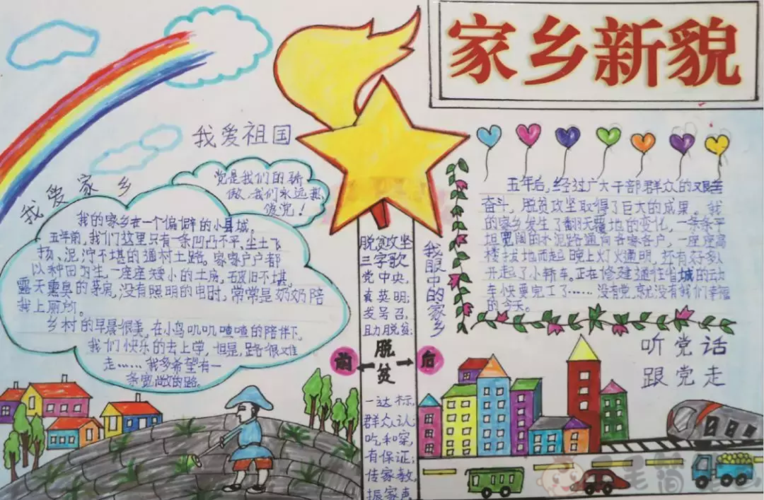 家乡新貌
我爱祖国
我爱家乡
党是我们的骄
傲,我们永远热
爱党!
我的家乡在一个偏僻的小县城,
五年前,我们这里只有一条凹凸不平,尘土飞
扬,泥泞不堪的通村土路,家家户户都
以种田为生,一座座矮小的土房,破旧不堪,
露天恶臭的茅房,没有照明的电时,常常是奶奶陪
我上厕所。
乡村的早晨很美,在小鸟叽叽喳喳的陪伴下,
我们快乐的去上学,但是,路很难
走……我多希望有一
条宽敞的路。
脱贫攻坚
三字歌
党中央,
真英明;
发号召,
助脱贫;
我眼中的家乡
前
脱贫
后
一达标,
群众认;
吃和穿,
有保证;
传家教,
振家声
五年后,经过广大干部群众的艰苦
奋斗,脱贫攻坚取得了巨大的成果,我
的家乡发生了翻天覆地的变化,一条条平
坦宽阔的水泥路通向各家各户,一座座高
楼拔地而起,晚上灯火通明,还有好多人
开起了小轿车,正在修建通往县城的动
车快要完工了……没有党,就没有我们幸福
的今天。
听党话
跟党走